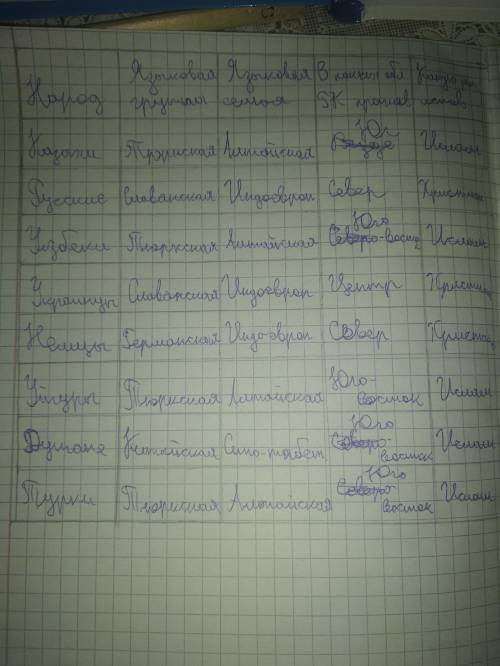 Народ Языковая группа Языковая семья В каких обл. РК прожив.
Казахи Тюркская Алтайская Юг Ислам
Русские Славянская Индоевроп Север Христиан
Узбеки Тюркская Алтайская Юго-вост Ислам
Украинцы Славянская Индоевроп Центр
Немцы Германская Индо-европ Север
Уйгуры Тюркская Алтайская Юго-восток Ислам
Дунгане Китайская Сино-тибет. Юго восток Ислам
Турки Тюркская Алтайская Юго восток Ислам